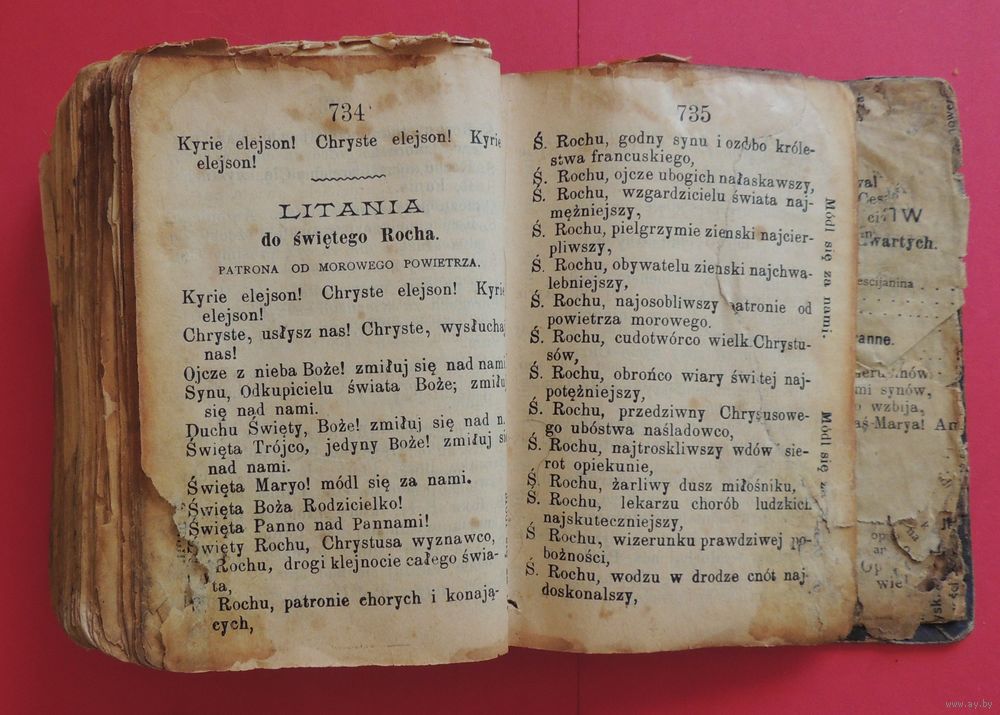 734
Kyrie elejson! Chryste elejson! Kyrie
elejson!
LITANIA
do świętego Rocha.
PATRONA OD MOROWEGO POWIETRZA.
Kyrie elejson! Chryste elejson! Kyrie
elejson!
Chryste, usłysz nas! Chryste, wysłucha
nas!
Ojcze z nieba Boże! zmiłuj się nad nami
Synu, Odkupicielu świata Boże; zmiłuj
się nad nami.
Duchu Święty, Boże! zmiłuj się nad n
Święta Trójco, jedyny Boże! zmiłuj si
nad nami.
Święta Maryo! módl się za nami.
Święta Boża Rodzicielko!
Święta Panno nad Pannami!
Święty Rochu, Chrystusa wyznawco,
Rochu, drogi klejnocie całego świa-
ta,
Rochu, patronie chorych i konają-
cych,
735
Ś. Rochu, godny synu i ozdobo króle-
stwa francuskiego,
Ś. Rochu, ojcze ubogich nałaskawszy,
Ś. Rochu, wzgardzicielu świata naj-
mężniejszy,
Ś. Rochu, pielgrzymie zienski najcier-
pliwszy,
Ś. Rochu, obywatelu zienski najchwa-
lebniejszy,
Ś. Rochu, najosobliwszy patronie od
powietrza morowego.
Ś. Rochu, cudotwórco wielk Chrystu-
sów,
Ś. Rochu, obrońco wiary świ tej naj-
potężniejszy,
Ś. Rochu, przedziwny Chrysusowe-
go ubóstwa naśladowco,
Ś. Rochu, najtroskliwszy wdów sie-
rot opiekunie,
Ś. Rochu, żarliwy dusz miłośniku,
Ś. Rochu, lekarzu chorób ludzkich
najskuteczniejszy,
Ś Rochu, wizerunku prawdziwej po-
bożności,
Ś. Rochu, wodzu w drodze cnót naj-
doskonalszy,
Módl się za nami.
Módl się
wartych.
eścijanina
anne.
mi synów,
o wzbija,
aś Marya! Am
www.ay.by